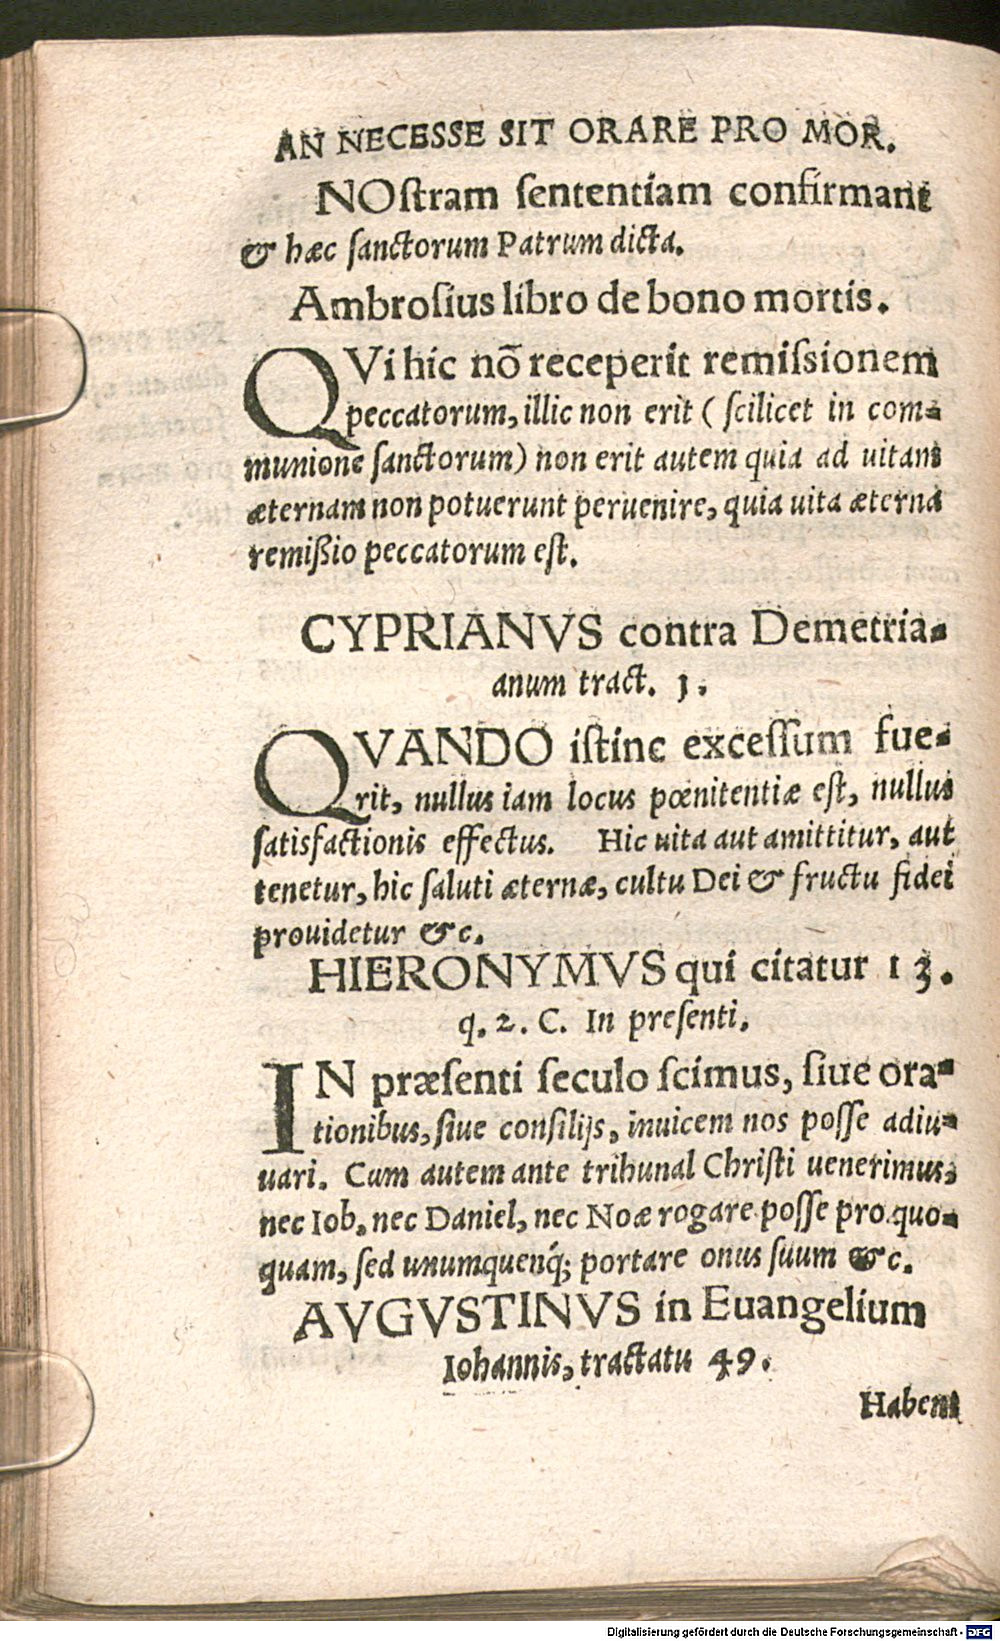 AN NECESSE SIT ORARE PRO MOR.
NOſtram ſententiam confirmant
& hæc ſanctorum Patrum dicta.
Ambroſius libro de bono mortis.
QVi hic nõ receperit remiſsionem
peccatorum, illic non erit ( ſcilicet in com-
munione ſanctorum) non erit autem quia ad uitam
æternam non potuerunt peruenire, quia uita æterna
remißio peccatorum eſt.
CYPRIANVS contra Demetria-
anum tract. 1.
QVANDO iſtinc exceſſum fue-
rit, nullus iam locus pœnitentiæ eſt, nullus
ſatisfactionis effectus. Hic uita aut amittitur, aut
tenetur, hic ſaluti æternæ, cultu Dei & fructu fidei
prouidetur &c.
HIERONYMVS qui citatur 13.
q. 2. C. In preſenti.
IN præſenti ſeculo ſcimus, ſiue ora-
tionibus, ſiue conſilijs, inuicem nos poſſe adiu-
uari. Cum autem ante tribunal Chriſti uenerimus,
nec Iob, nec Daniel, nec Noæ rogare poſſe pro quo-
quam, ſed unumquenq́; portare onus ſuum &c.
AVGVSTINVS in Euangelium
Iohannis, tractatu 49.
Habent
Digitalisierung gefördert durch die Deutsche Forschungsgemeinschaft - DFG